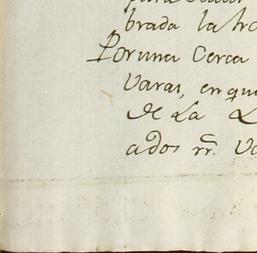 para
brada la
Por una Cerca
Varas, en que
de La
ados rr.